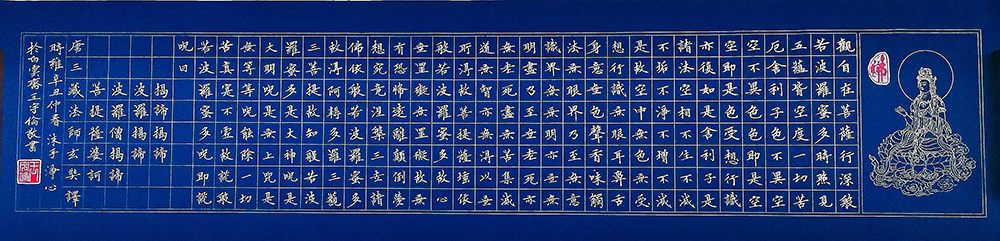 觀自在菩薩行深般
若波羅蜜多時照見
五蘊皆空度一切苦
厄舍利子色不異空
空不異色色即是空
空即是色受想行識
亦復如是舍利子是
諸法空相不生不滅
不垢不淨不增不減
是故空中無色無受
想行識無眼耳鼻舌
身意無色聲香味觸
法無眼界乃至無意
識界無無明亦無無
明盡乃至無老死亦
無老死盡無苦集滅
道無智亦無得以無
所得故菩提薩埵依
般若波羅蜜多故心
無罣礙無罣礙故無
有恐怖遠離顛倒夢
想究竟涅槃三世諸
佛依般若波羅蜜多
故得阿耨多羅三藐
三菩提故知般若波
羅蜜多是大神呪是
大明呪是無上呪是
無等等呪能除一切
苦真實不虛故說般
若波羅蜜多呪即說
呪曰
揭諦揭諦
波羅揭諦
波羅僧揭諦
菩提薩婆訶
唐三藏法師玄奘譯
時維辛丑仲春 沐手淨心
於白雲齋王宇倫敬書
佛